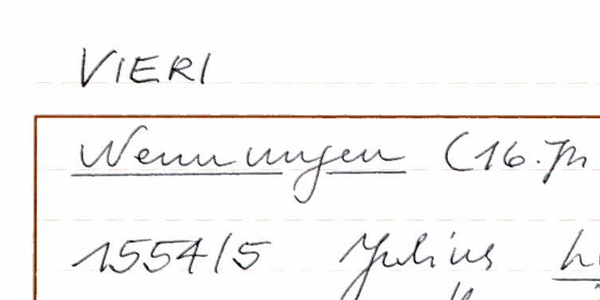 VIERI
Wennungen (16. Jh
1554/5 Julius